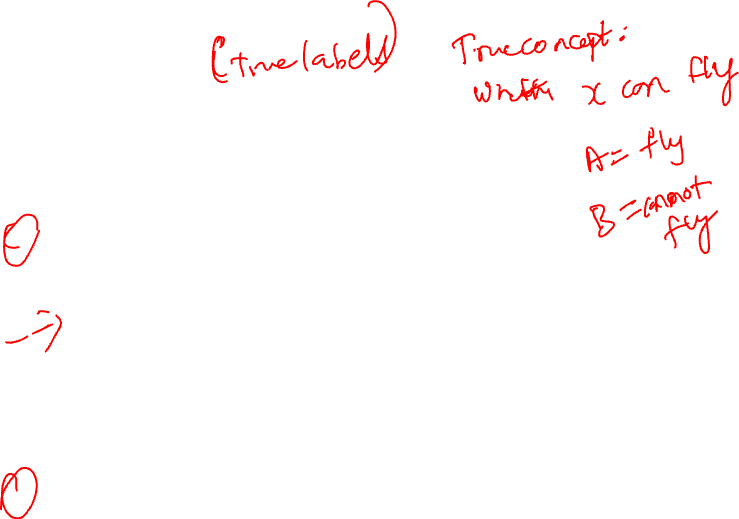 (true labels)
True concept:
x can fly
A = fly
B = cannot
fly